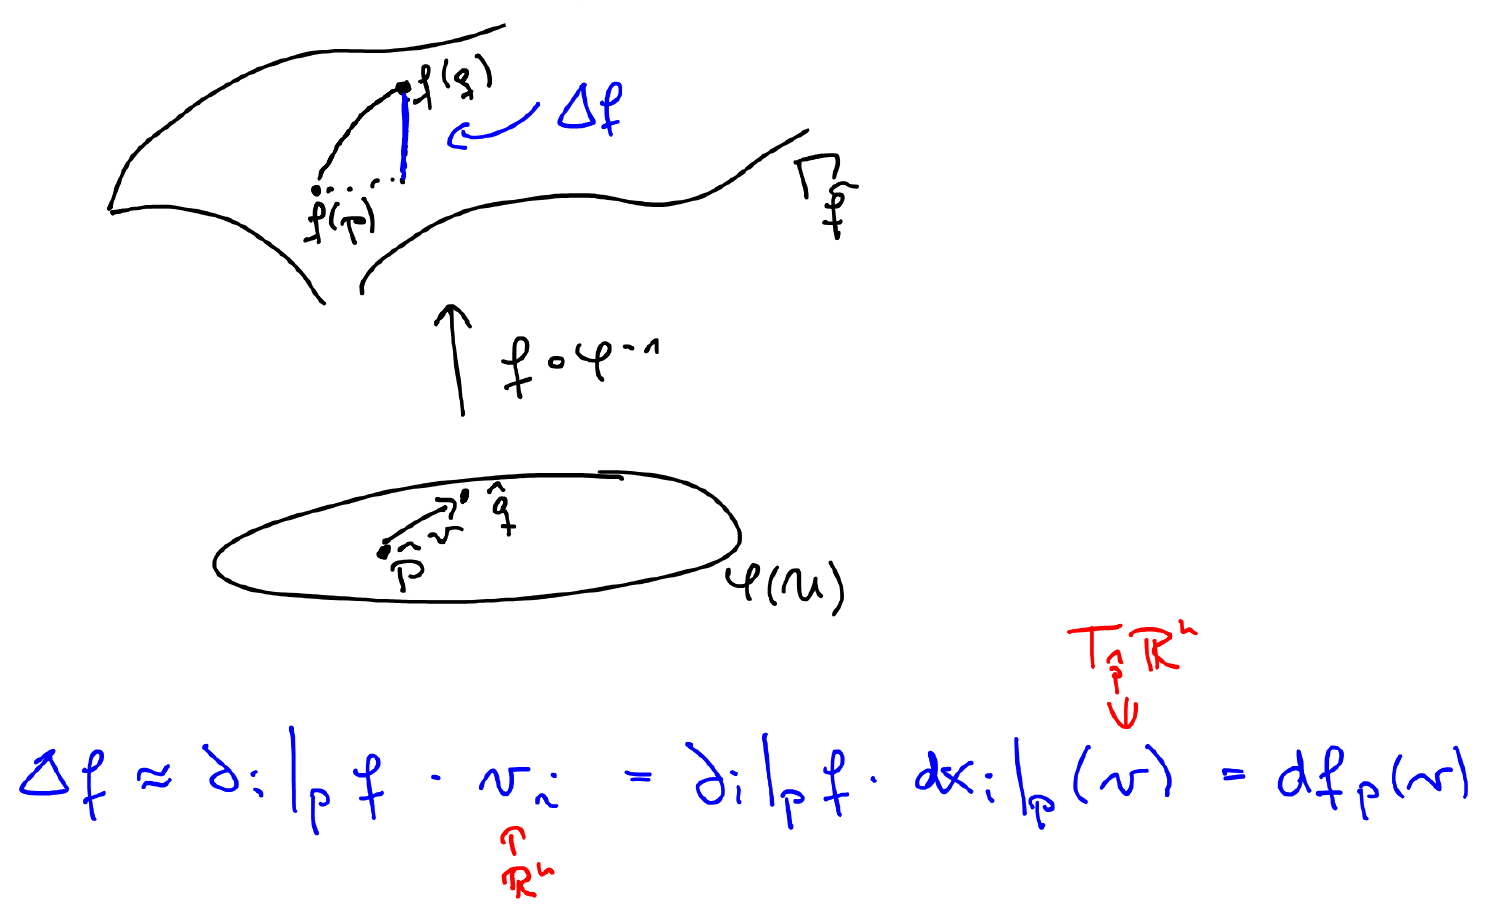 f(q)
Δf
f(p)
Γ_f̂
f ∘ φ⁻¹
q̂
v
p̂
φ(U)
T_p̂ ℝⁿ
↓
Δf ≈ ∂ᵢ|ₚ f · vᵢ = ∂ᵢ|ₚ f · dxᵢ|ₚ (v) = dfₚ(v)
↑
ℝⁿ